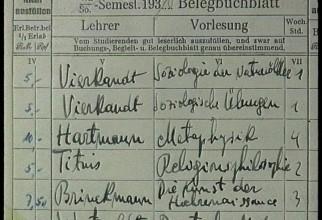 ausfüllen -Semest. 193 Belegbuchblatt
Erl. Betr. bei Lehrer Vorlesung Woch. Std.
Vom Studierenden gut leserlich auszufüllen, und zwar auf
Buchungs-, Begleit- u. Belegbuchblatt genau übereinstimmend.
IV V VI VII
5,- Vierkandt Soziologie der Naturvölker 1
5,- Vierkandt Soziologische Übungen 1
10,- Hartmann Metaphysik 4
5,- Titius Religionsphilosophie 2
7,50 Brinckmann Die Kunst der Hochrenaissance 3